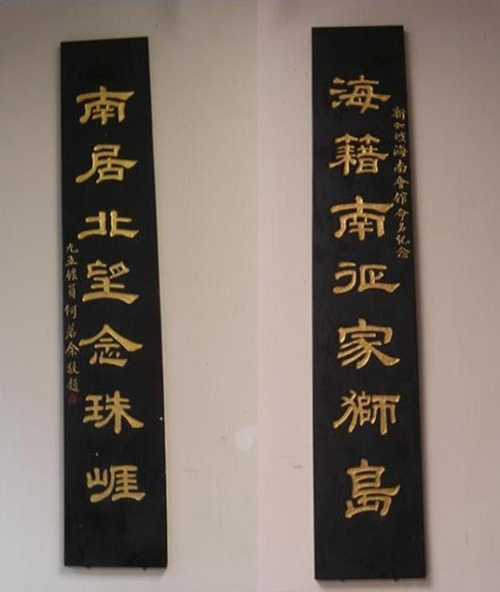 海籍南征家獅島
新加坡海南會館命名紀念
南居北望念珠崕
九五員何余敬題